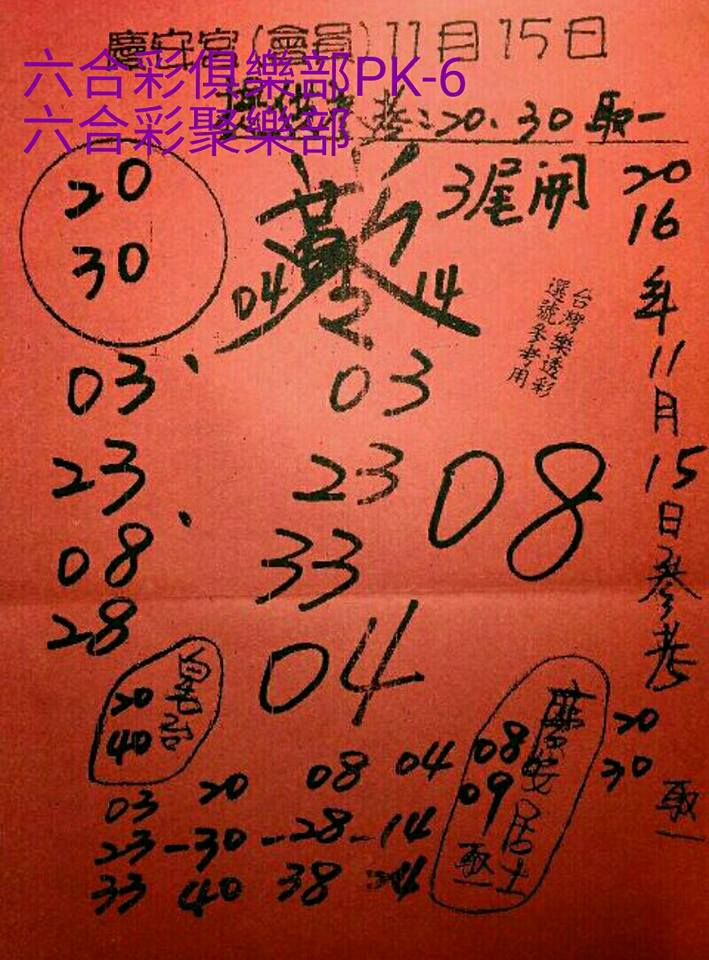 慶安宮(會員)11月15日
六合彩俱樂部PK-6
六合彩聚樂部
提供參考:20、30 取一
20
30
3尾開
04
14
2016年11月15日參考
台灣樂透彩
選號參考用
03、
23
08
28
03
23
33
08
04
20
40
08
09
居士
取一
20
30
取一
03 20 08 04
23-30-28-14
33 40 38 24